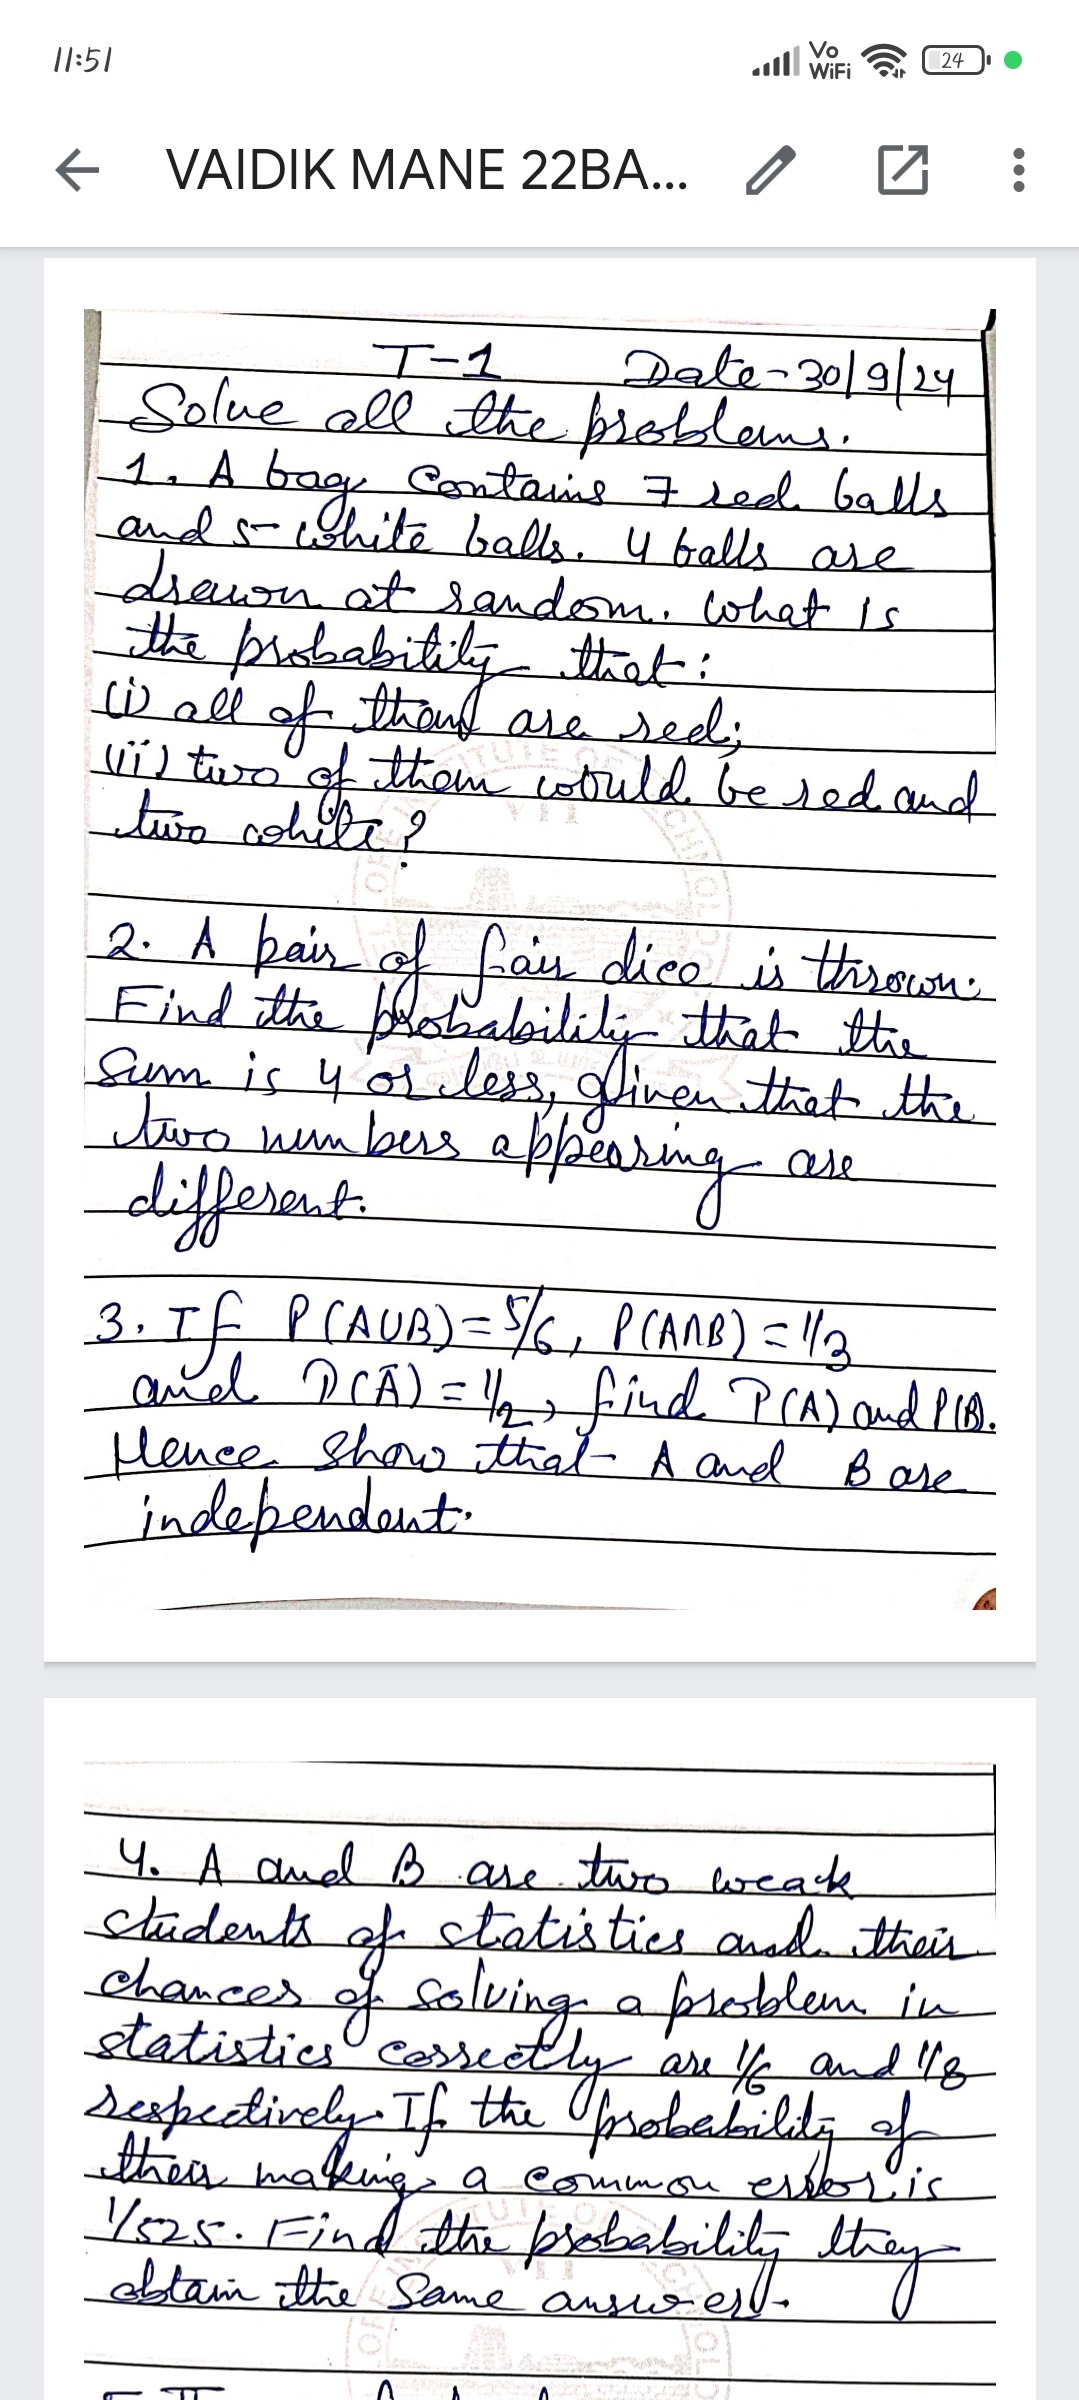 11:51
Vo
WiFi
24
VAIDIK MANE 22BA...
T-1 Date-30/9/24
Solve all the problems.
1. A bag contains 7 red balls
and 5 white balls. 4 balls are
drawn at random. What is
the probability that:
(i) all of them are red;
(ii) two of them would be red and
two white?
2. A pair of fair dice is thrown.
Find the probability that the
sum is 4 or less, given that the
two numbers appearing are
different.
3. If P(AUB)=5/6, P(A∩B)=1/3
and P(Ā)=1/2, find P(A) and P(B).
Hence show that A and B are
independent.
4. A and B are two weak
students of statistics and their
chances of solving a problem in
statistics correctly are 1/6 and 1/8
respectively. If the probability of
their making a common error is
1/525. Find the probability they
obtain the same answer.